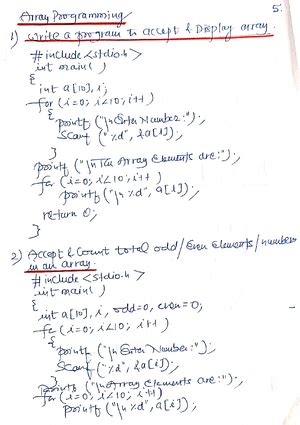 Array Programming
5.
1) Write a program to Accept & Display array.
#include <stdio.h>
int main( )
{
int a[10], i;
for (i=0; i<10; i++)
{
printf ("\n Enter Number:");
scanf ("%d", &a[i]);
}
printf ("\n The Array Elements are:");
for (i=0; i<10; i++)
printf ("\n %d", a[i]);
return 0;
}
2) Accept & Count total odd/Even Elements/number
in an array.
#include <stdio.h>
int main( )
{
int a[10], i, odd=0, even=0;
for (i=0; i<10; i++)
{
printf ("\n Enter Number:");
scanf ("%d", &a[i]);
}
printf ("\n Array Elements are:");
for (i=0; i<10; i++)
printf ("\n %d", a[i]);